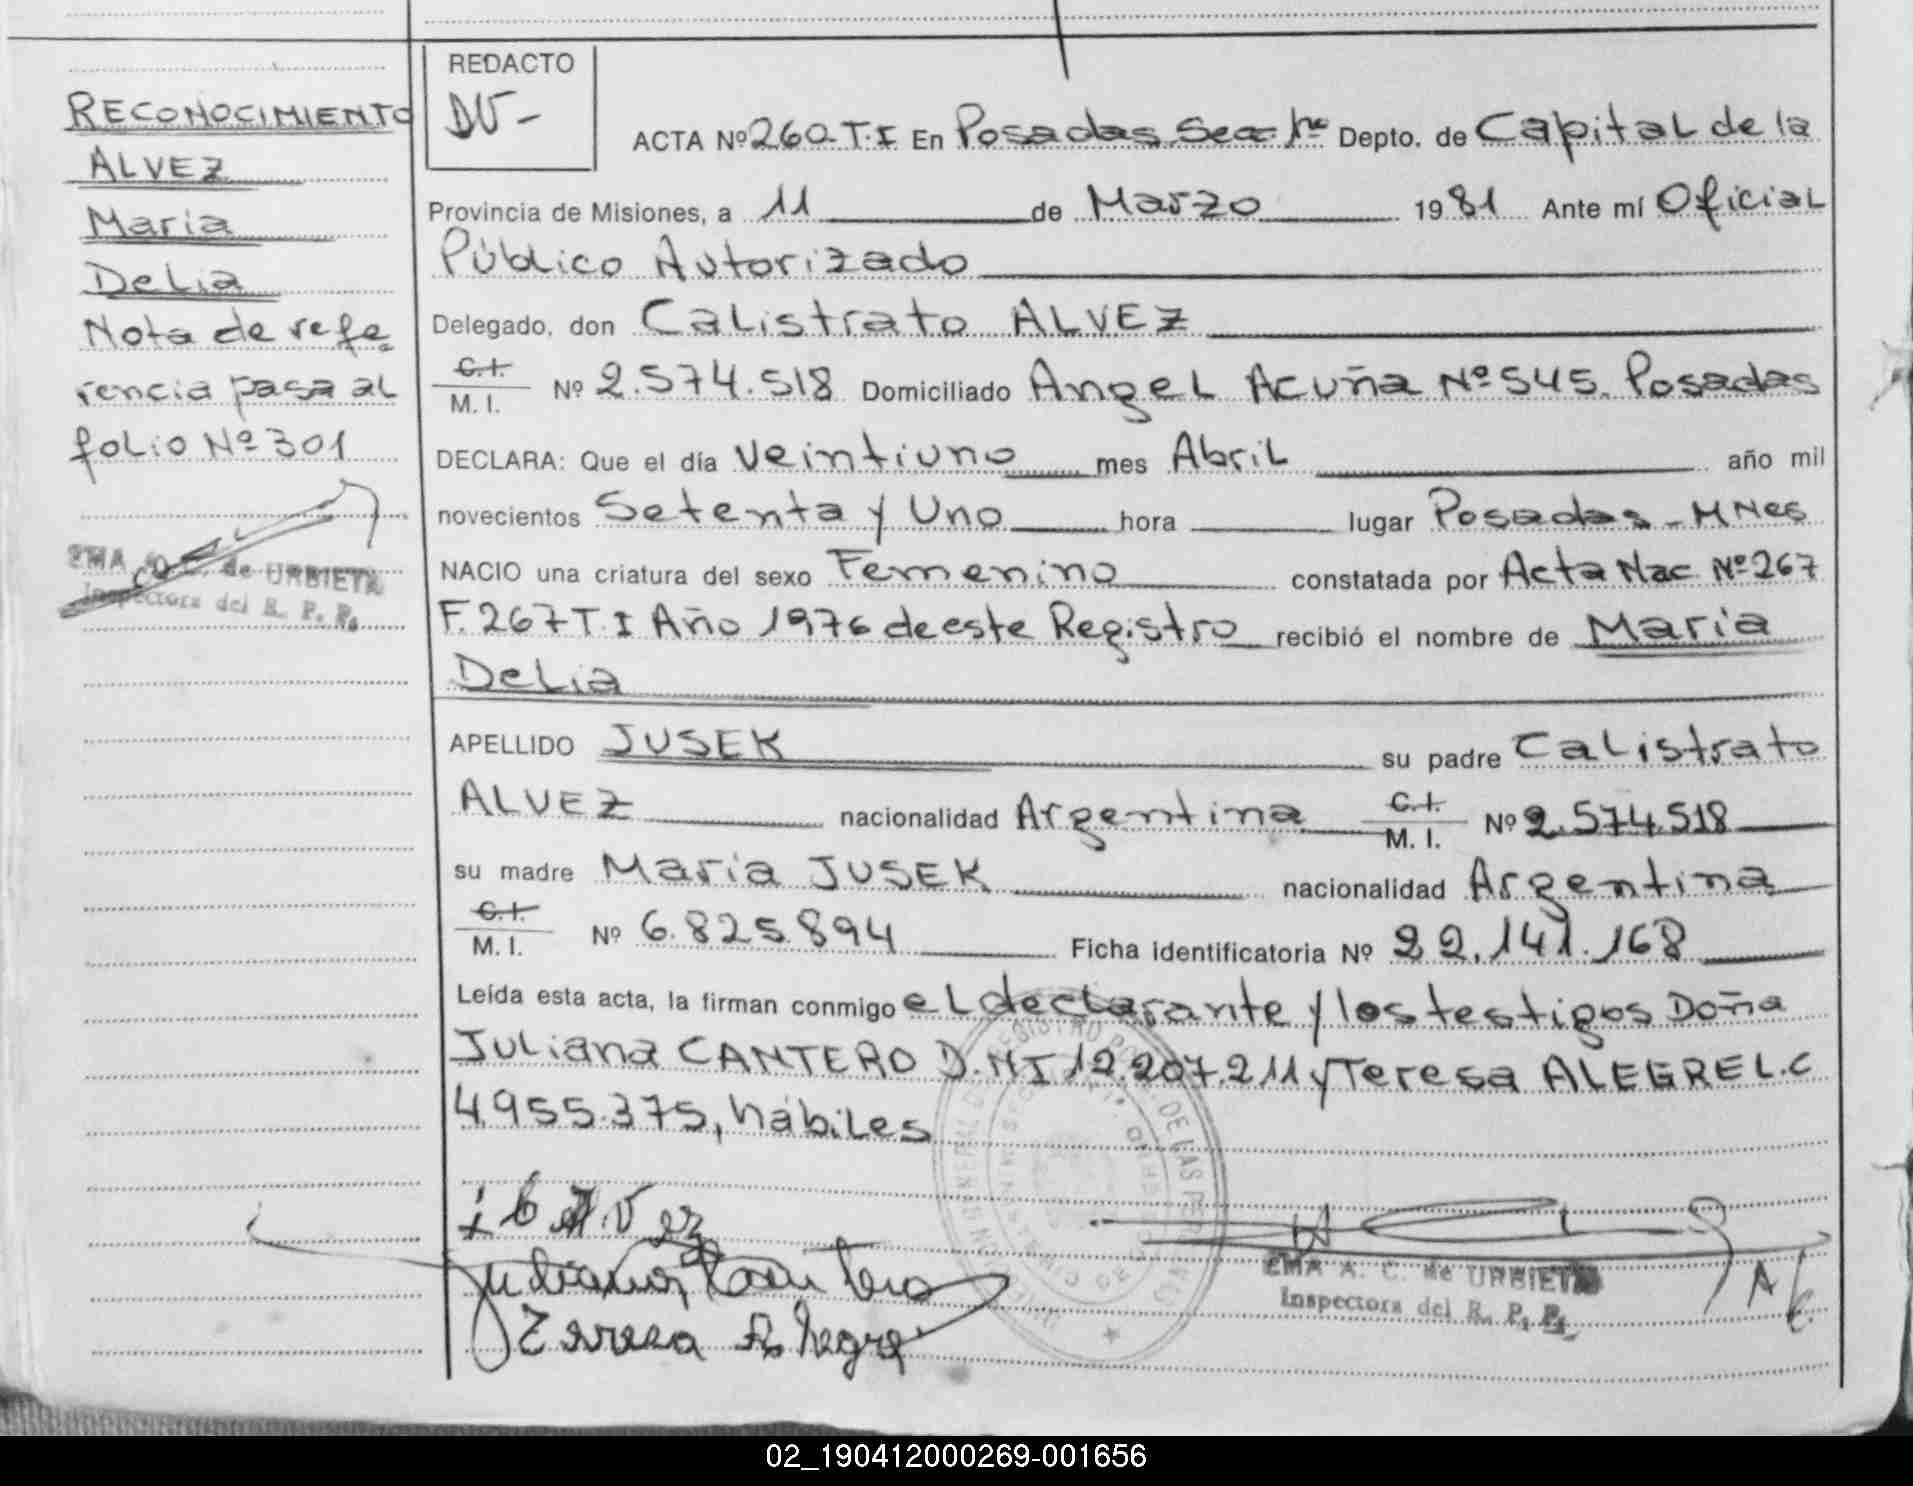 RECONOCIMIENTO
ALVEZ
Maria
Delia
Nota de refe
rencia pasa al
folio Nº 301
EMA A. C. de URBIETA
Inspectora del R. P. P.
REDACTO
DU-
ACTA Nº 260 T.I En Posadas Secc 1ra Depto. de Capital de la
Provincia de Misiones, a 11 de Marzo 1981 Ante mí Oficial
Público Autorizado
Delegado, don Calistrato ALVEZ
C.I.
M. I. Nº 2.574.518 Domiciliado Angel Acuña Nº 545. Posadas
DECLARA: Que el día Veintiuno mes Abril año mil
novecientos Setenta y Uno hora lugar Posadas - MNes
NACIO una criatura del sexo Femenino constatada por Acta Nac Nº 267
F. 267 T.I Año 1976 de este Registro recibió el nombre de Maria
Delia
APELLIDO JUSEK su padre Calistrato
ALVEZ nacionalidad Argentina C.I. M. I. Nº 2.574.518
su madre Maria JUSEK nacionalidad Argentina
C.I.
M. I. Nº 6.825.894 Ficha identificatoria Nº 22.141.168
Leída esta acta, la firman conmigo el declarante y los testigos Doña
Juliana CANTERO D.NI 12.207.211 y Teresa ALEGRE L.C
4.955.375, hábiles
Juliana Cantero
Teresa Alegre
EMA A. C. de URBIETA
Inspectora del R. P. P.
02_190412000269-001656